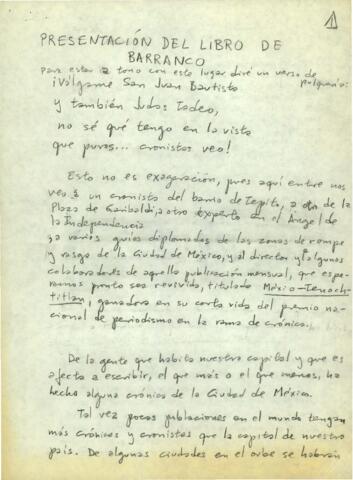 1
PRESENTACIÓN DEL LIBRO DE
BARRANCO
para estar a tono con este lugar diré un verso de
pulquería:
¡Válgame San Juan Bautista
y también Judas Tadeo,
no sé qué tengo en la vista
que puros... cronistas veo!
Esto no es exageración, pues aquí entre nos
veo a un cronista del barrio de Tepito, a otro de la
Plaza de Garibaldi, a otro experto en el Ángel de
la Independencia
y a varios guías diplomados de las zonas de rompe
y rasga de la Ciudad de México, y al director y algunos
colaboradores de aquella publicación mensual, que espe-
ramos pronto sea revivida, titulada México-Tenoch-
titlan, ganadora en su corta vida del premio na-
cional de periodismo en la rama de crónica.
De la gente que habita nuestra capital y que es
afecta a escribir, el que más o el que menos, ha
hecho alguna crónica de la Ciudad de México.
Tal vez pocas poblaciones en el mundo tengan
más crónicas y cronistas que la capital de nuestro
país. De algunas ciudades en el orbe se habrán